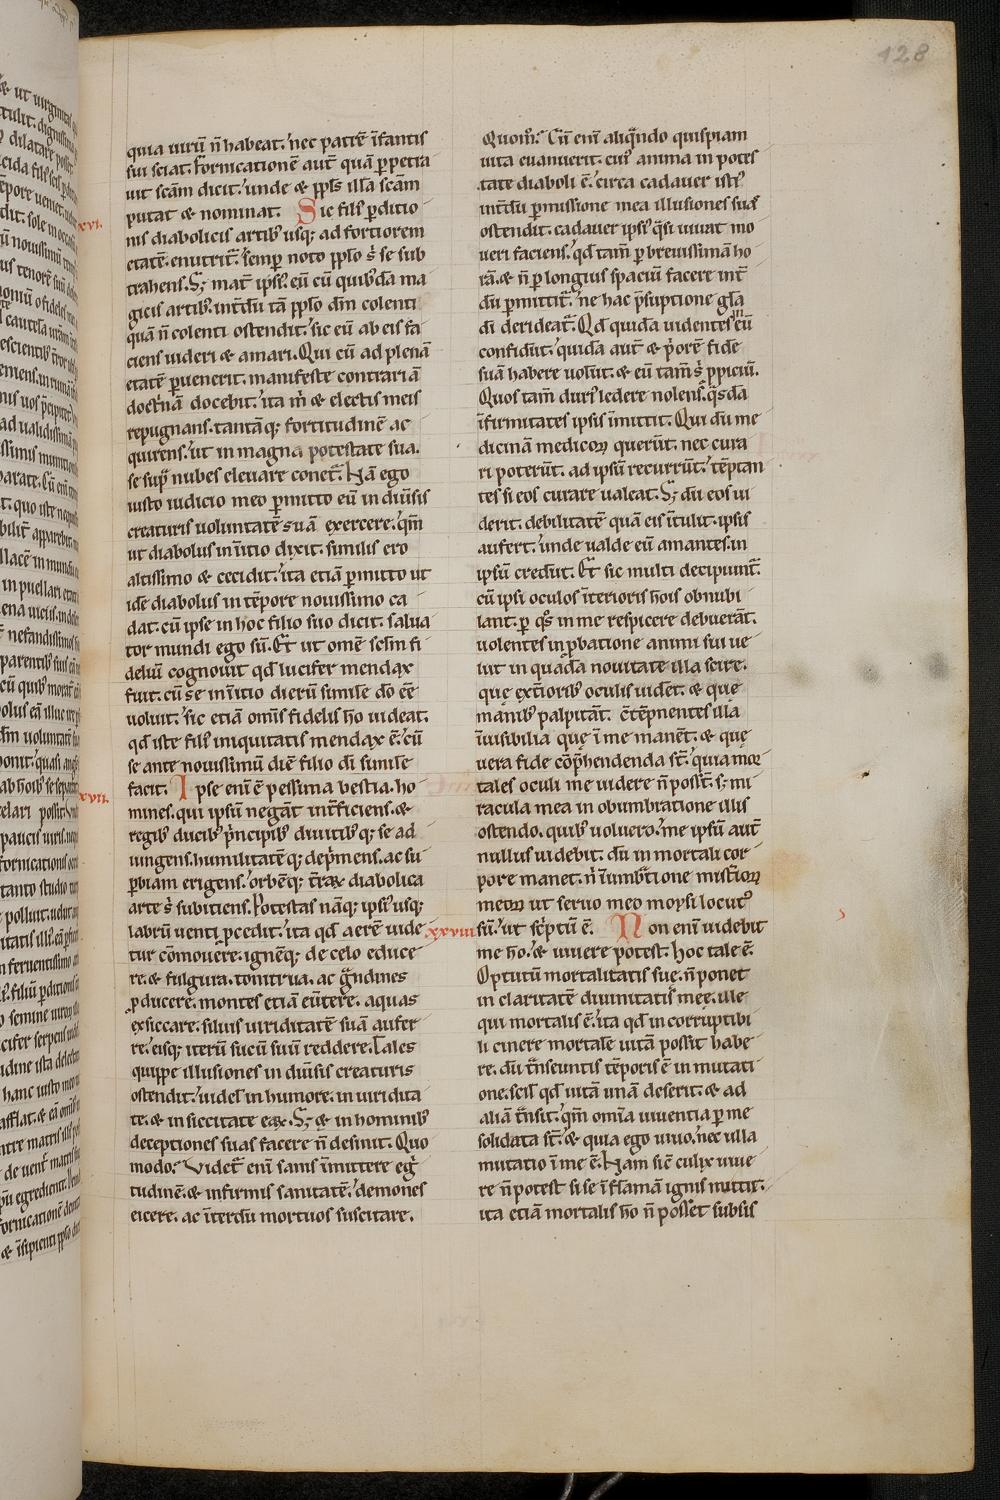 128
quia uirũ ñ habeat. nec patrẽ ĩfantis
sui sciat. Fornicationẽ aut̃ quã ꝑpetra
uit scãm dicit. unde & ppłs illã scãm
putat & nominat. Sic filiꝰ ꝑditio
nis diabolicis artibꝰ usq; ad fortiorem
etatẽ enutrit̃. semꝑ noto ppło ẜ se sub
trahens. S; mat̃ ipsiꝰ. eũ cũ quibꝰdã ma
gicis artibꝰ. int̃dũ tã ppło dm̃ colenti
quã ñ colenti ostendit. sic eũ ab eis fa
ciens uideri & amari. Qui cũ ad plenã
etatẽ ꝑuenerit. manifeste contrariã
doct̃nã docebit. ita m̃ & electis meis
repugnans. tantãq; fortitudinẽ ac
quirens. ut in magna potestate sua.
se suꝑ nubes eleuare conet̃. Nã ego
iusto iudicio meo ꝑmitto eũ in diũsis
creaturis uoluntatẽ suã exercere. qm̃
ut diabolus in ĩtio dixit. similis ero
altissimo & cecidit. ita etiã ꝑmitto ut
idẽ diabolus in tẽpore nouissimo ca
dat. cũ ipse in hoc filio suo dicit. salua
tor mundi ego sũ. Et ut omẽ sctm̃ fi
deliũ cognouit qd lucifer mendax
fuit. cũ se in ĩtio dierũ similẽ do ẽẽ
uoluit. sic etiã om̃is fidelis ho uideat.
qd iste filiꝰ iniquitatis mendax ẽ. cũ
se ante nouissimũ diẽ filio di similẽ
facit. Ipse eni ẽ pessima bestia. ho
mines. qui ipsũ negãt int̃ficiens. &
regibꝰ ducibꝰ p̃ncipibꝰ diuitibꝰ q; se ad
iungens. humilitatẽ q; dep̃mens. ac su
ꝑbiam erigens. orbẽq; t̃raꝝ diabolica
arte ẜ subitiens. Potestas nãq; ipsiꝰ usq;
labrũ uenti ꝓcedit. ita qd aerẽ uide
tur cõmouere. ignẽq; de celo educe
re. & fulgura. tonitrua. ac g̃ndines
ꝓducere. montes etiã eũtere. aquas
exsiccare. siluis uiriditatẽ suã aufer
re. eisq; iterũ sucũ suũ reddere. Tales
quippe illusiones in diũsis creaturis
ostendit. uidel in humore. in uiridita
te. & in siccitate eaꝝ. S; & in hominibꝰ
deceptiones suas facere ñ desinit. Quo
modo? Videt̃ eni sanis ĩmittere eg̃
tudinẽ. & infirmis sanitatẽ. demones
eicere. ac ĩterdũ mortuos suscitare.
Quom̃? Cũ eni aliq̃ndo quispiam
uita euanuerit. cuiꝰ anima in potes
tate diaboli ẽ. circa cadauer istiꝰ
int̃dũ ꝑmissione mea illusiones suas
ostendit. cadauer ipsiꝰ q̃si uiuat mo
ueri faciens. qd tam̃ ꝑ breuissimã ho
rã. & ñ ꝑ longius spaciũ facere int̃
dũ ꝑmittit̃. ne hac p̃suptione gła
di derideat̃. Qd quidã uidentes ĩn eũ
confidũt. quidã aut̃ & p̃orẽ fidẽ
suã habere uolũt. & eũ tam̃ ẜ ppiciũ.
Quos tam̃ duriꝰ ledere nolens. q̃sdã
ĩfirmitates ipsis ĩmittit. Qui dũ me
dicinã medicoꝝ querũt. nec cura
ri poterũt. ad ipsũ recurrũt. tẽptan
tes si eos curare ualeat. S; dũ eos ui
derit. debilitatẽ quã eis ĩtulit. ipsis
aufert. unde ualde eũ amantes. in
ipsũ credũt. Et sic multi decipiunt̃.
cũ ipsi oculos ĩterioris hois obnubi
lant. ꝑ qs̃ in me respicere debuerãt.
uolentes in ꝓbatione animi sui ue
lut in quadã nouitate illa scire.
quę ext̃ioribꝰ oculis uidet. & que
manibꝰ palpitãt. c̃tẽpnentes illa
ĩuisibilia quę ĩ me manẽt. & quę
uera fide cõp̃hendenda st̃. quia mor
tales oculi me uidere ñ posst̃. s; mi
racula mea in obumbratione illis
ostendo. quibꝰ uoluero. me ipsũ aut̃
nullus uidebit. dũ in mortali cor
pore manet. ñ ĩ umb̃tione mist̃ioꝝ
meoꝝ ut seruo meo moysi locutꝰ
xxviii. sũ. ut sc̃ptũ ẽ. Non eni uidebit
me ho. & uiuere potest. Hoc tale ẽ.
Optutũ mortalitatis sue. ñ ponet
in claritatẽ diuinitatis meę. ille
qui mortalis ẽ. ita qd in corruptibi
li cinere mortalẽ uitã possit habe
re. dũ t̃nseuntis tẽporis ẽ in mutati
one. scił qd uitã unã deserit. & ad
aliã t̃nsit. qm̃ om̃ia uiuentia ꝑ me
solidata st̃. & quia ego uiuo. nec ulla
mutatio ĩ me ẽ. Nam sič culix uiue
re ñ potest si se ĩ flamã ignis mittit.
ita etiã mortalis ho ñ posset subsis